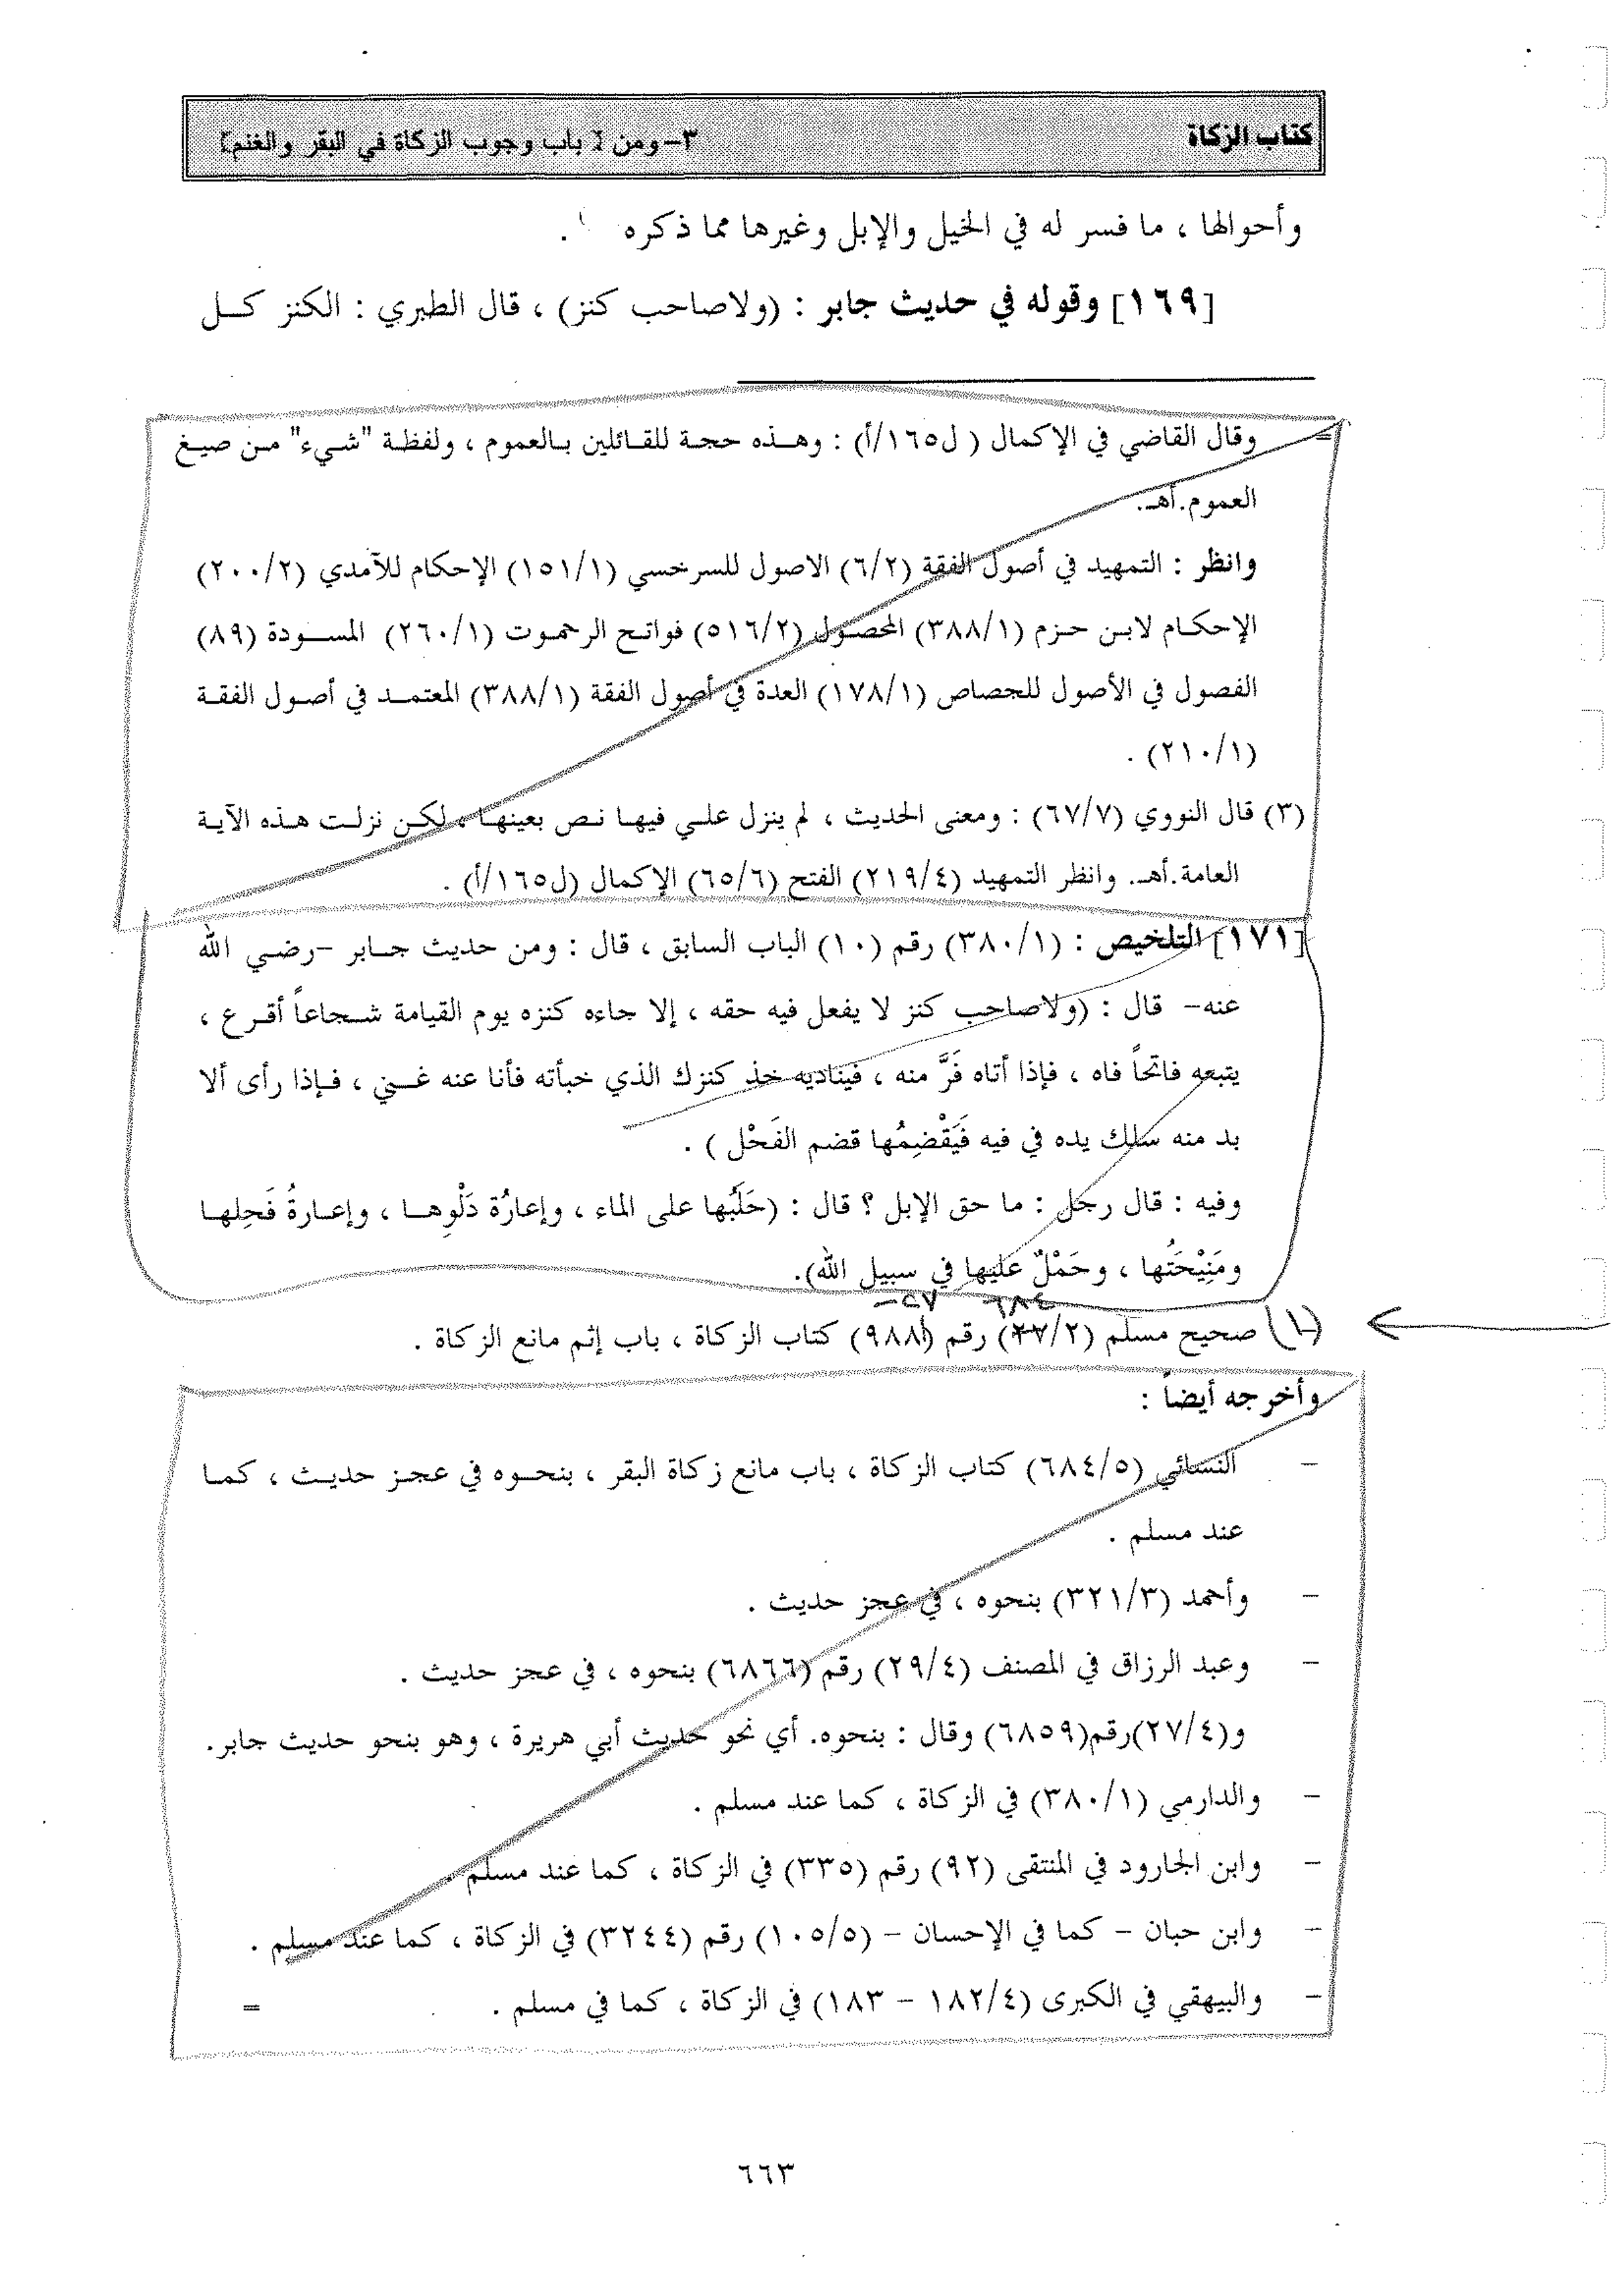 كتاب الزكاة ٣-ومن [ باب وجوب الزكاة في البقر والغنم]
وأحوالها ، ما فسر له في الخيل والإبل وغيرها مما ذكره .
[١٦٩] وقوله في حديث جابر : (ولاصاحب كنز) ، قال الطبري : الكنز كل
= وقال القاضي في الإكمال ( ل١٦٥/أ) : وهذه حجة للقائلين بالعموم ، ولفظة "شيء" من صيغ
العموم.أهـ.
وانظر : التمهيد في أصول الفقة (٦/٢) الاصول للسرخسي (١٥١/١) الإحكام للآمدي (٢٠٠/٢)
الإحكام لابن حزم (٣٨٨/١) المحصول (٥١٦/٢) فواتح الرحموت (٢٦٠/١) المسودة (٨٩)
الفصول في الأصول للجصاص (١٧٨/١) العدة في أصول الفقة (٣٨٨/١) المعتمد في أصول الفقة
(٢١٠/١) .
(٣) قال النووي (٦٧/٧) : ومعنى الحديث ، لم ينزل علي فيها نص بعينها ، لكن نزلت هذه الآية
العامة.أهـ. وانظر التمهيد (٢١٩/٤) الفتح (٦٥/٦) الإكمال (ل١٦٥/أ) .
[١٧١] التلخيص : (٣٨٠/١) رقم (١٠) الباب السابق ، قال : ومن حديث جابر -رضي الله
عنه- قال : (ولاصاحب كنز لا يفعل فيه حقه ، إلا جاءه كنزه يوم القيامة شجاعاً أقرع ،
يتبعه فاتحاً فاه ، فإذا أتاه فَرَّ منه ، فيناديه خذ كنزك الذي خبأته فأنا عنه غني ، فإذا رأى ألا
بد منه سلك يده في فيه فَيَقْضِمُها قضم الفَحْل ) .
وفيه : قال رجل : ما حق الإبل ؟ قال : (حَلَبُها على الماء ، وإعارُة دَلْوِها ، وإعارةُ فَحِلها
ومَنِيْحَتُها ، وحَمْلٌ عليها في سبيل الله).
٦٨٤ -٢٧
(١) صحيح مسلم (٢٧/٢) رقم (٩٨٨) كتاب الزكاة ، باب إثم مانع الزكاة .
وأخرجه أيضاً :
- النسائي (٦٨٤/٥) كتاب الزكاة ، باب مانع زكاة البقر ، بنحوه في عجز حديث ، كما
عند مسلم .
- وأحمد (٣٢١/٣) بنحوه ، في عجز حديث .
- وعبد الرزاق في المصنف (٢٩/٤) رقم (٦٨٦٦) بنحوه ، في عجز حديث .
و(٢٧/٤)رقم(٦٨٥٩) وقال : بنحوه. أي نحو حديث أبي هريرة ، وهو بنحو حديث جابر.
- والدارمي (٣٨٠/١) في الزكاة ، كما عند مسلم .
- وابن الجارود في المنتقى (٩٢) رقم (٣٣٥) في الزكاة ، كما عند مسلم .
- وابن حبان - كما في الإحسان - (١٠٥/٥) رقم (٣٢٤٤) في الزكاة ، كما عند مسلم .
- والبيهقي في الكبرى (١٨٢/٤ - ١٨٣) في الزكاة ، كما في مسلم . =
٦٦٣